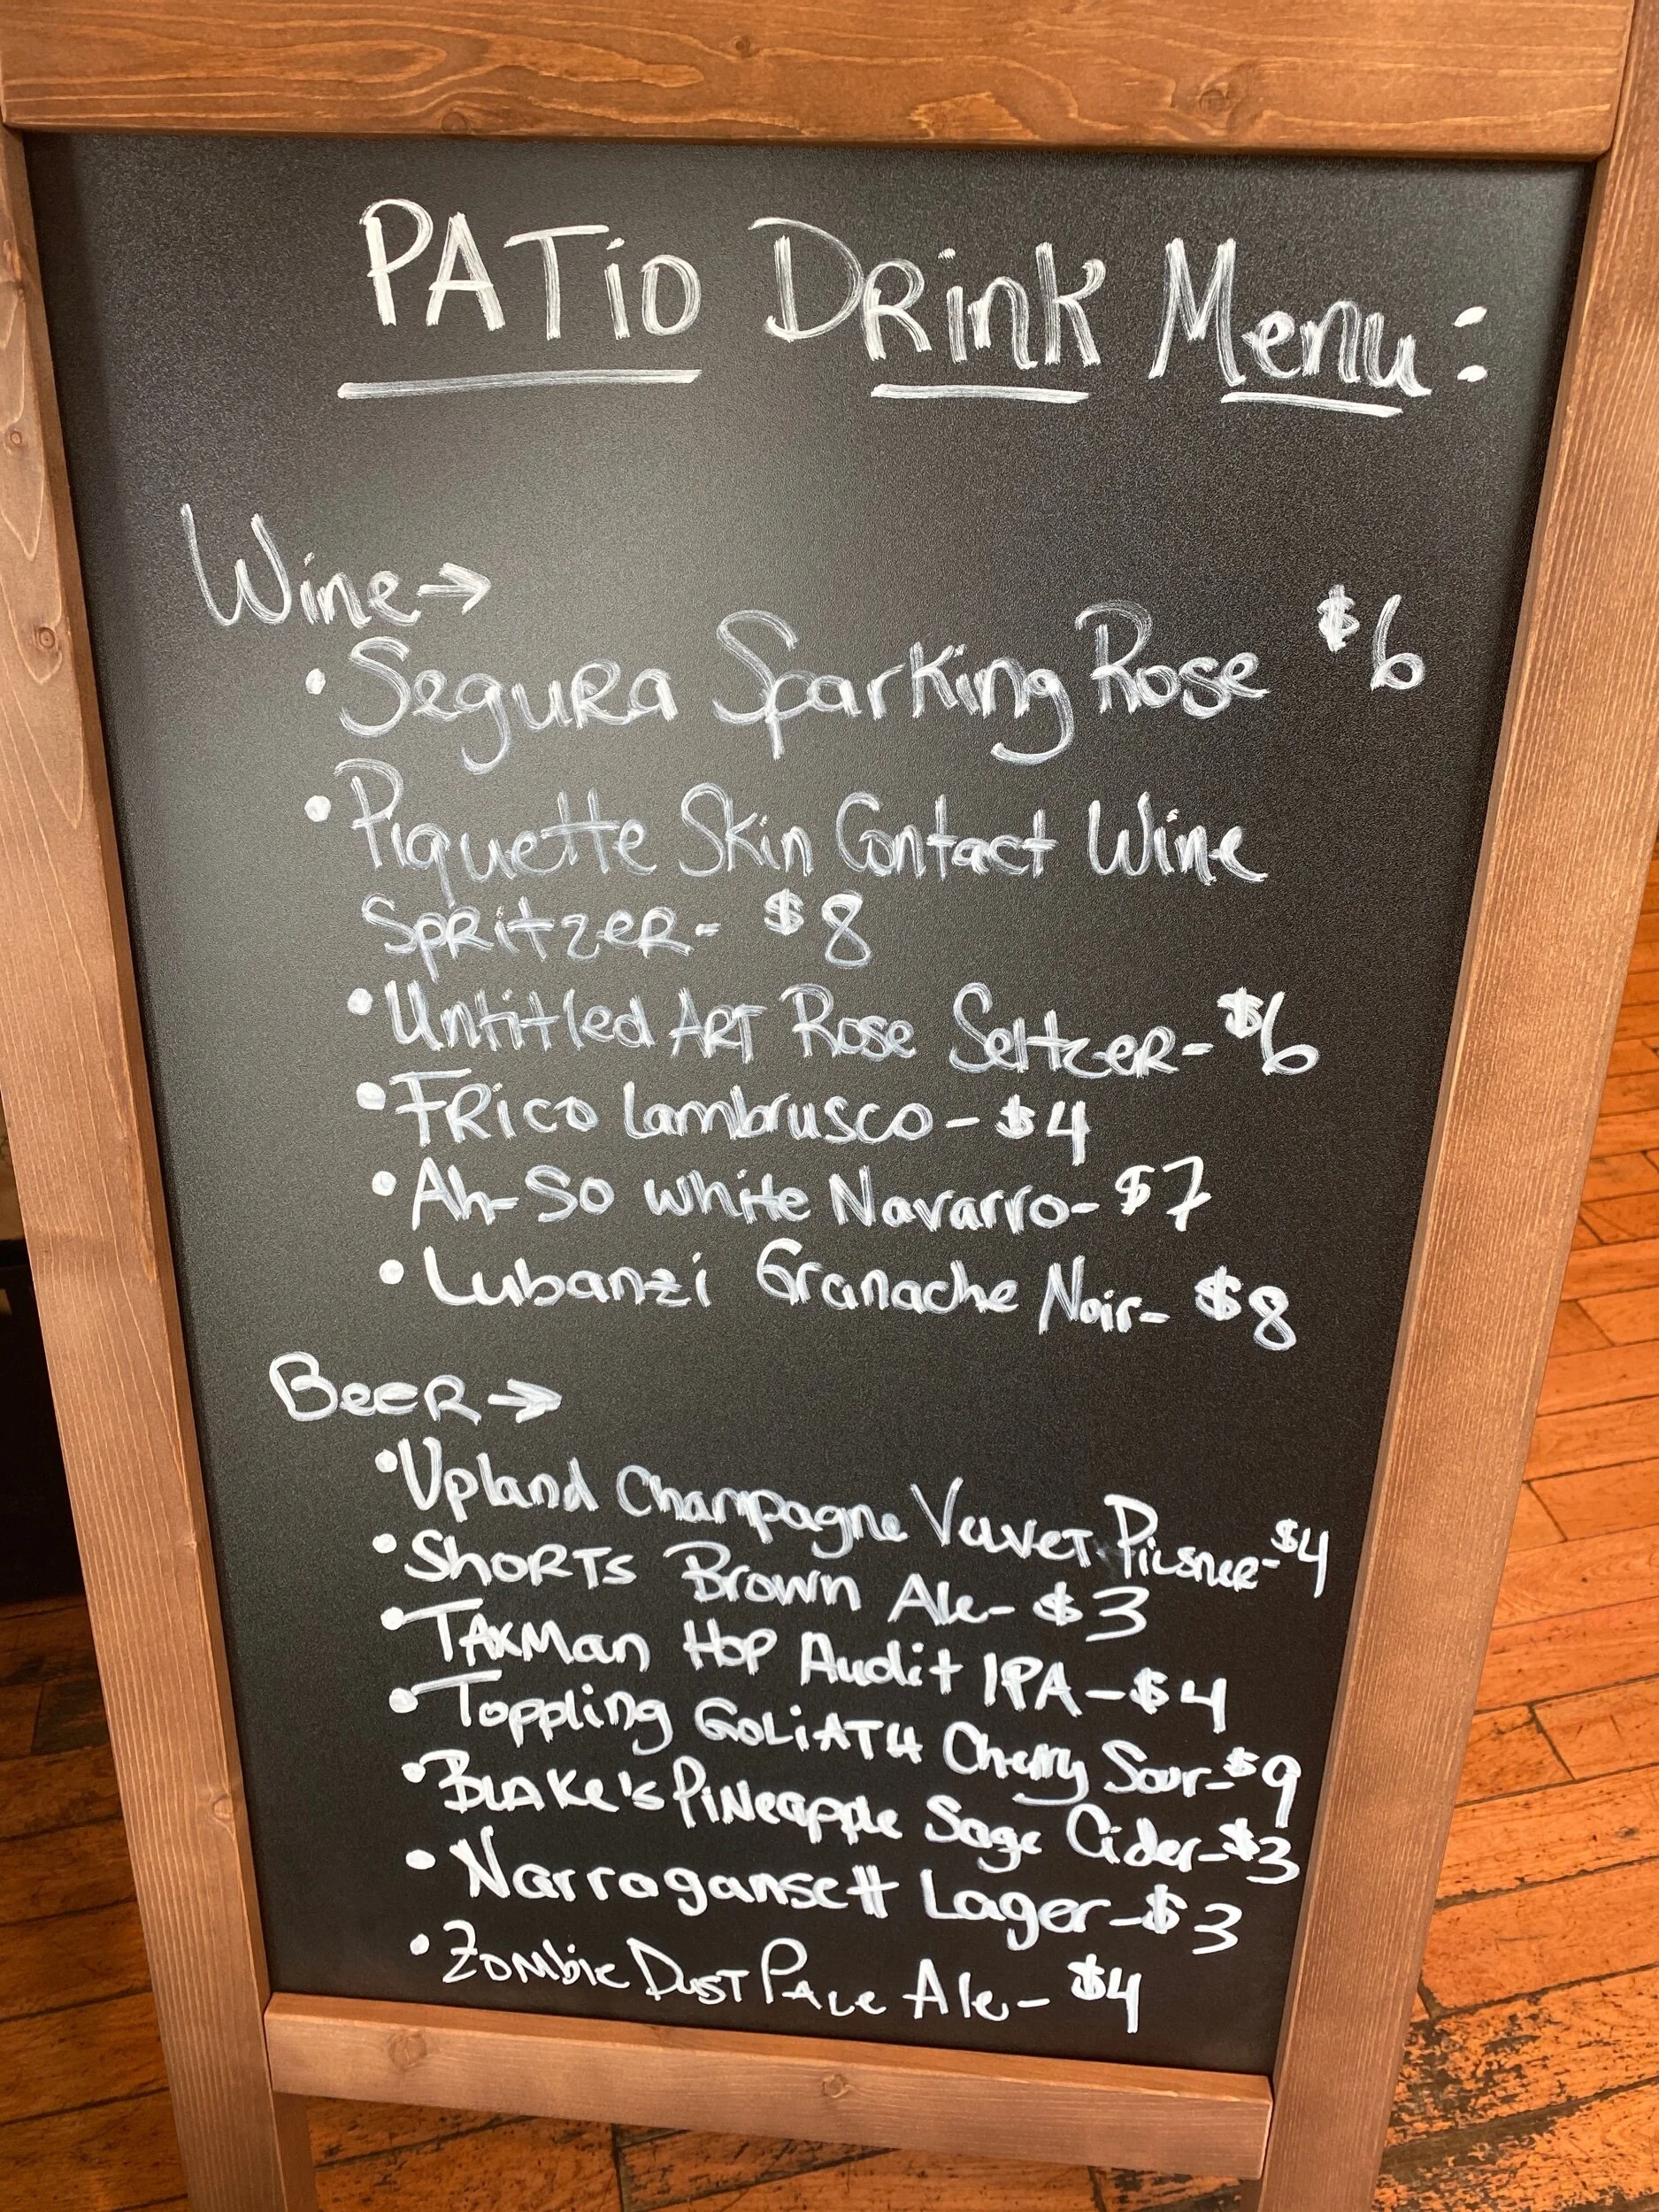 PATio DRink Menu:
Wine→
• Segura Sparking Rose $6
• Piquette Skin Contact Wine
SpRitzeR- $8
• Untitled ART Rose SeltzeR- $6
• FRico Lambrusco - $4
• Ah-So white Navarro- $7
• Lubanzi Granache Noir- $8
BeeR→
• Upland Champagne VelveT Pilsner- $4
• ShoRTs Brown Ale- $3
• TAxMan Hop Audit IPA - $4
• Toppling GoLiATH Cherry Sour- $9
• BLAKe's PiNeapple Sage Cider- $3
• Narragansett Lager- $3
• Zombie DusT PALe Ale- $4